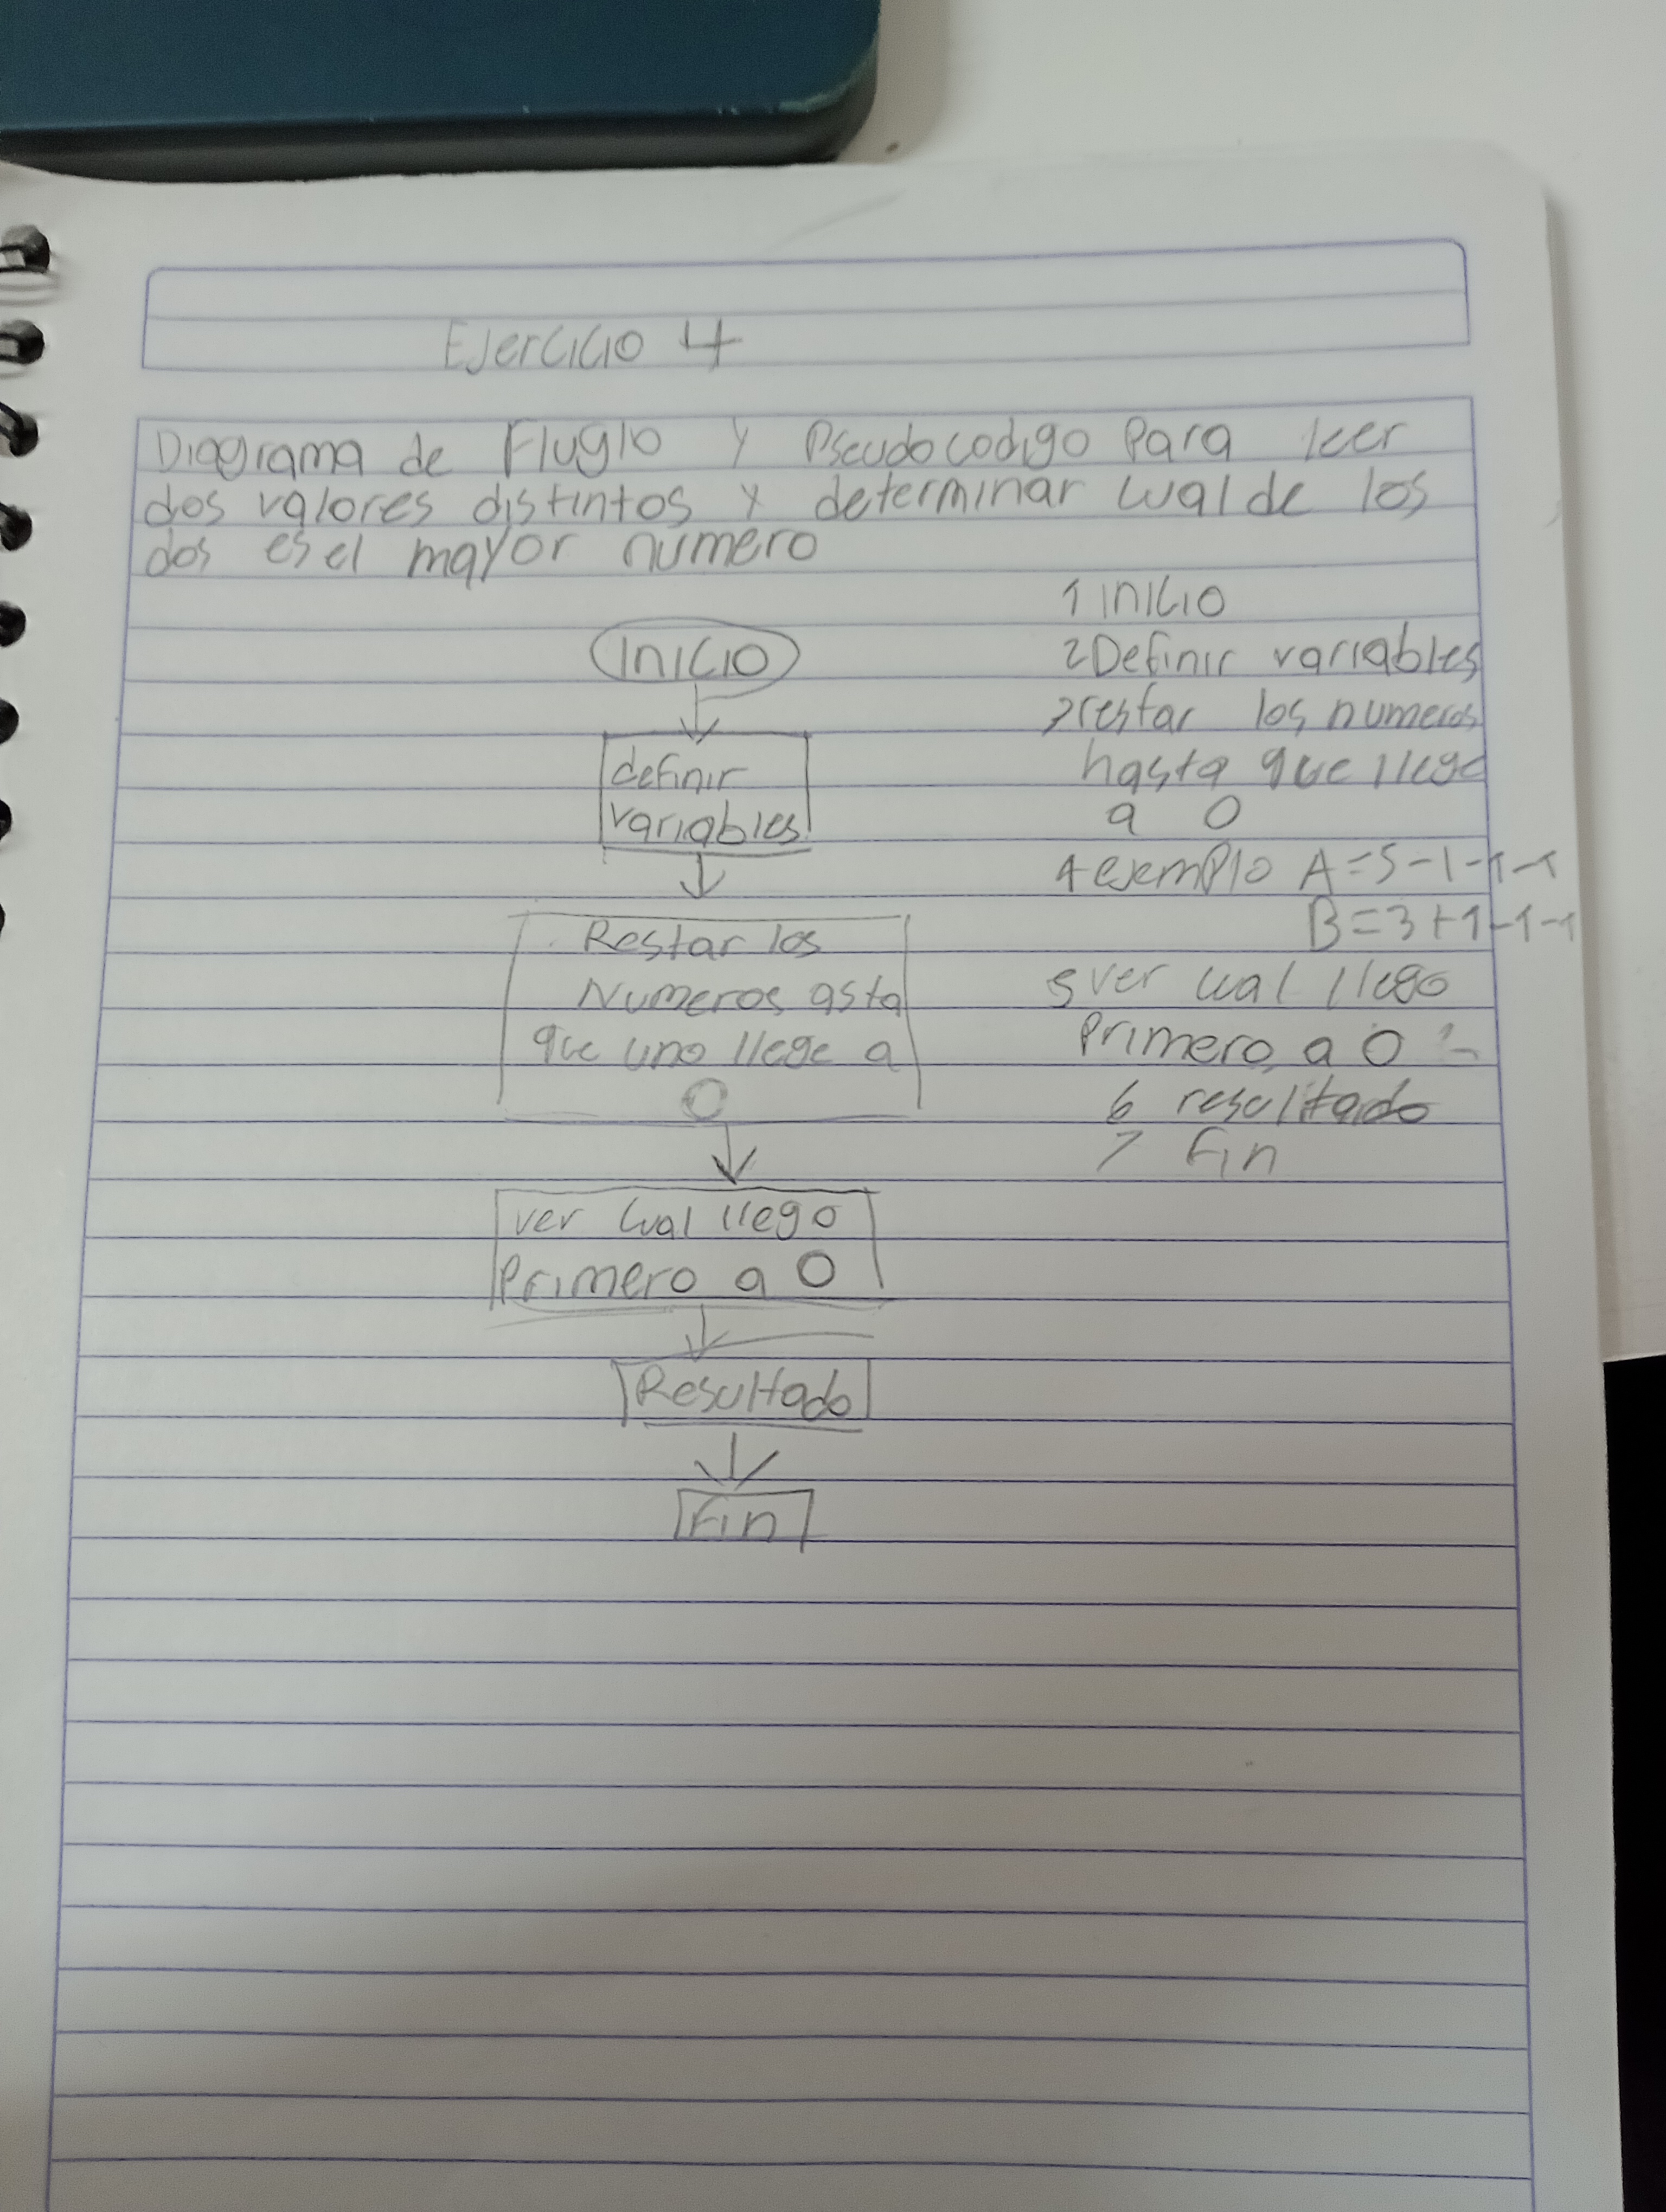 Ejercicio 4
Diagrama de Fluglo y Pseudocodigo Para leer
dos valores distintos y determinar cual de los
dos es el mayor numero
Inicio
definir
variables
Restar los
Numeros asta
que uno llege a
0
ver cual llego
Primero a 0
Resultado
Fin
1 inicio
2 Definir variables
3 restar los numeros
hasta que llege
a 0
4 ejemplo A=5-1-1-1
B=3+1-1-1
5 ver cual llego
Primero a 0
6 resultado
7 Fin